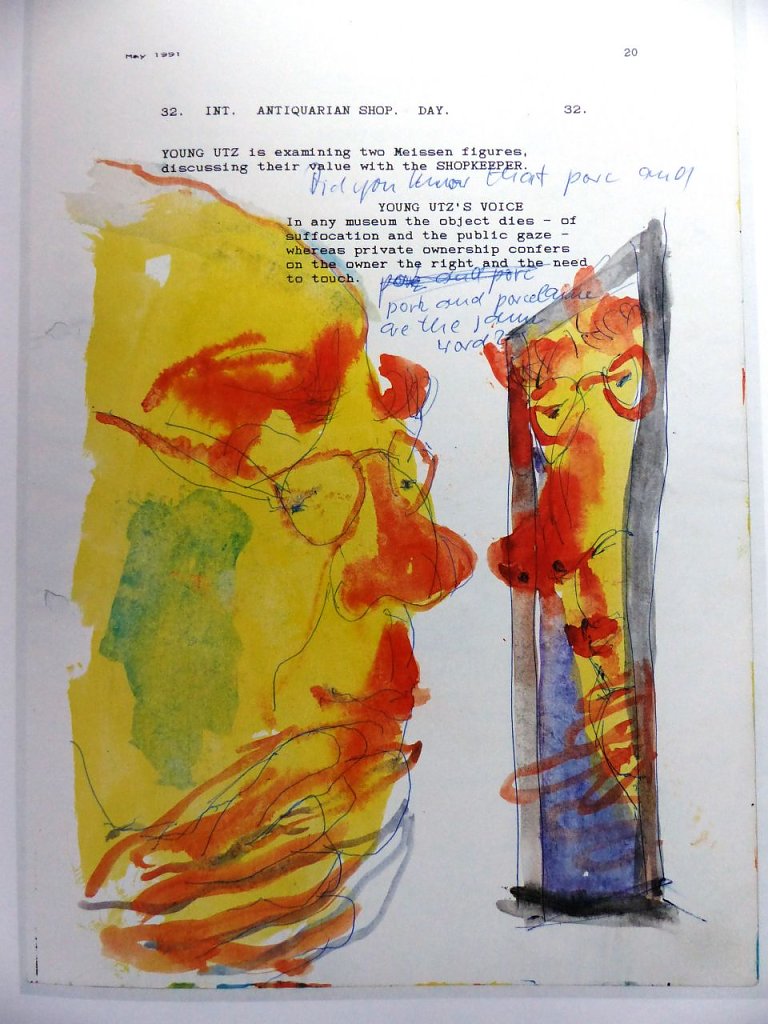 May 1991 20
32. INT. ANTIQUARIAN SHOP. DAY. 32.
YOUNG UTZ is examining two Meissen figures,
discussing their value with the SHOPKEEPER.
Did you know that porc and
YOUNG UTZ'S VOICE
In any museum the object dies - of
suffocation and the public gaze -
whereas private ownership confers
on the owner the right and the need
to touch.
pork and porc
pork and porcelaine
are the same
word?